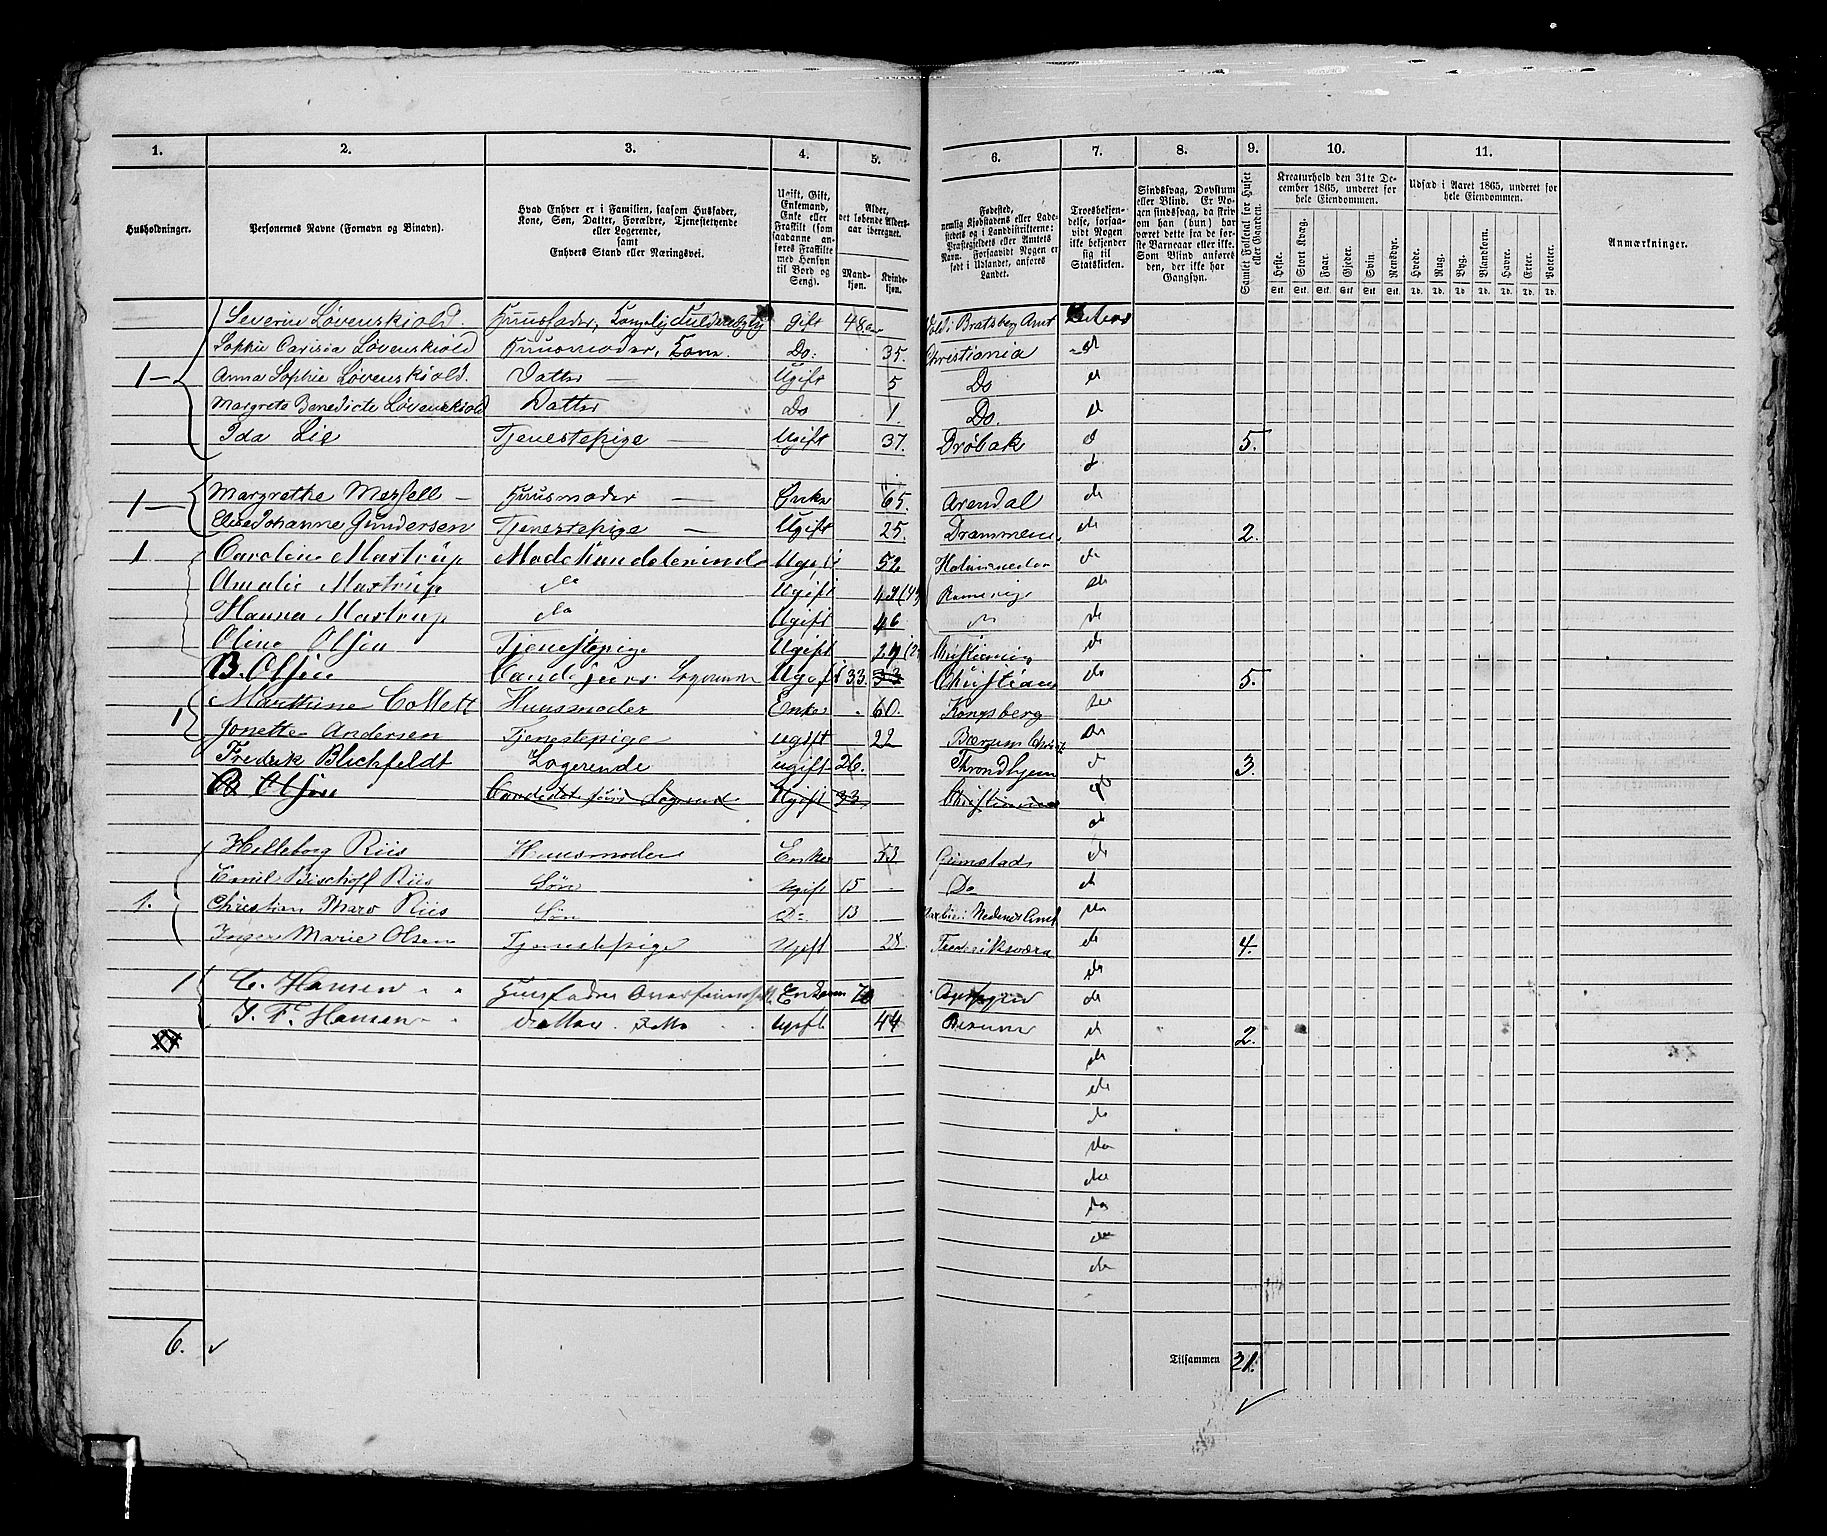 1. 2. 3. 4. 5. 6. 7. 8. 9. 10. 11.
Husholdninger.
Personernes Navne (Fornavn og Binavn).
Hvad Enhver er i Familien, saasom Husfader, Kone, Søn, Datter, Forældre, Tjenestetyende eller Logerende, samt Enhvers Stand eller Næringsvei.
Ugift, Gift, Enkemand, Enke eller Fraskilt (som saadanne anføres Fraskilte med Hensyn til Bord og Seng).
Alder, det løbende Aldersaar iberegnet.
Mandkjøn. Kvindekjøn.
Fødested, nemlig Kjøbstadens eller Ladestedets og i Landdistrikterne: Præstegjeldets eller Amtets Navn. Forsaavidt Nogen er født i Udlandet, anføres Landet.
Troesbekjendelse, forsaavidt Nogen ikke bekjender sig til Statskirken.
Sindssvag, Døvstum eller Blind. Er Nogen sindssvag, da skriv om han (hun) har været dette fra de første Barneaar eller ikke. Som Blind anføres den, der ikke har Gangsyn.
Samlet Folketal for Huset eller Gaarden.
Kreaturhold den 31te December 1865, underet for hele Eiendommen.
Heste. Stort Kvæg. Faar. Gjeder. Svin. Rensdyr.
Stk. Stk. Stk. Stk. Stk. Stk.
Udsæd i Aaret 1865, underet for hele Eiendommen.
Hvede. Rug. Byg. Blandkorn. Havre. Erter. Poteter.
Td. Td. Td. Td. Td. Td. Td.
Anmærkninger.
Severin Løvenskiold. Huusfader, gift 48 Bratsberg Amt
Sophie Løvenskiold Huusmoder, Kone. Do: 35. Christiania
1 Anna Sophie Løvenskiold. Datter Ugift 5 Do
Margrete Benedicte Løvenskiold Datter Do 1. Do.
Ida Lie Tjenestepige Ugift 37. Drøbak d 5.
1 Margrethe Huusmoder Enke 65. Arendal do
Johanne Gundersen Tjenestepige Ugift 25. Drammen do 2.
1. Caroline Mastrup Ugift 52 do
Amalie Mastrup do Ugift do
Hanna Mastrup do Ugift 46 do
Oline Olsen Tjenestepige Ugift Christiania do
B. Olsen Cand. jur. Logerende Ugift 33. 33 Christiania do 5.
1 Marthine Collett Huusmoder Enke 60. Kongsberg
Jonette Andersen Tjenestepige ugift 22 Bærum
Fredrik Blichfeldt Logerende ugift 26. Throndhjem 3.
B Olsen Candidat juris Logerende Ugift 33. Christiania
Helleborg Riis Huusmoder Enke 53 Grimstad d
Emil Bischoff Riis Søn Ugift 15 Do d
1. Christian Riis Søn Do 13 Nedenes Amt do
Inger Marie Olsen Tjenestepige Ugift 28 Frederiksværn do 4.
1 C. Hansen Huusfader 70 do
J. F. Hansen datter Ugift 44 Bærum d 2.
6.
Tilsammen 21.